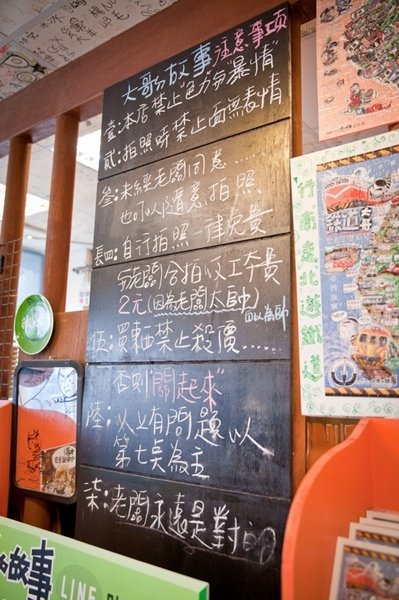 大哥故事注意事項
壹:本店禁止"色力份暴情"
貳:拍照時禁止面無表情
叁:未經老闆同意......
也可以隨意拍照
肆四:自行拍照一律免費
与老闆合拍收工本費
2元(因為老闆太帥)
自以為帥
伍:買東西禁止殺價.....
否則"關起來"
陸:以上有問題以
第七點為主
柒:老闆永遠是對的
故事 LINE
行闖臺北鐵道
鐵道大哥